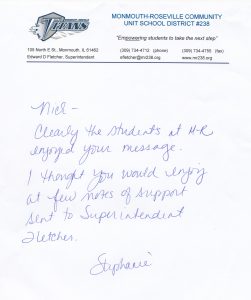 TITANS
MONMOUTH-ROSEVILLE COMMUNITY
UNIT SCHOOL DISTRICT #238
"Empowering students to take the next step"
105 North E St., Monmouth, IL 61462
(309) 734-4712 (phone)
(309) 734-4755 (fax)
Edward D Fletcher, Superintendent
efletcher@mr238.org
www.mr238.org
Nick-
Clearly the students at H-R
enjoyed your message.
I thought you would enjoy
at few notes of support
sent to Superintendent
Fletcher.
Stephanie